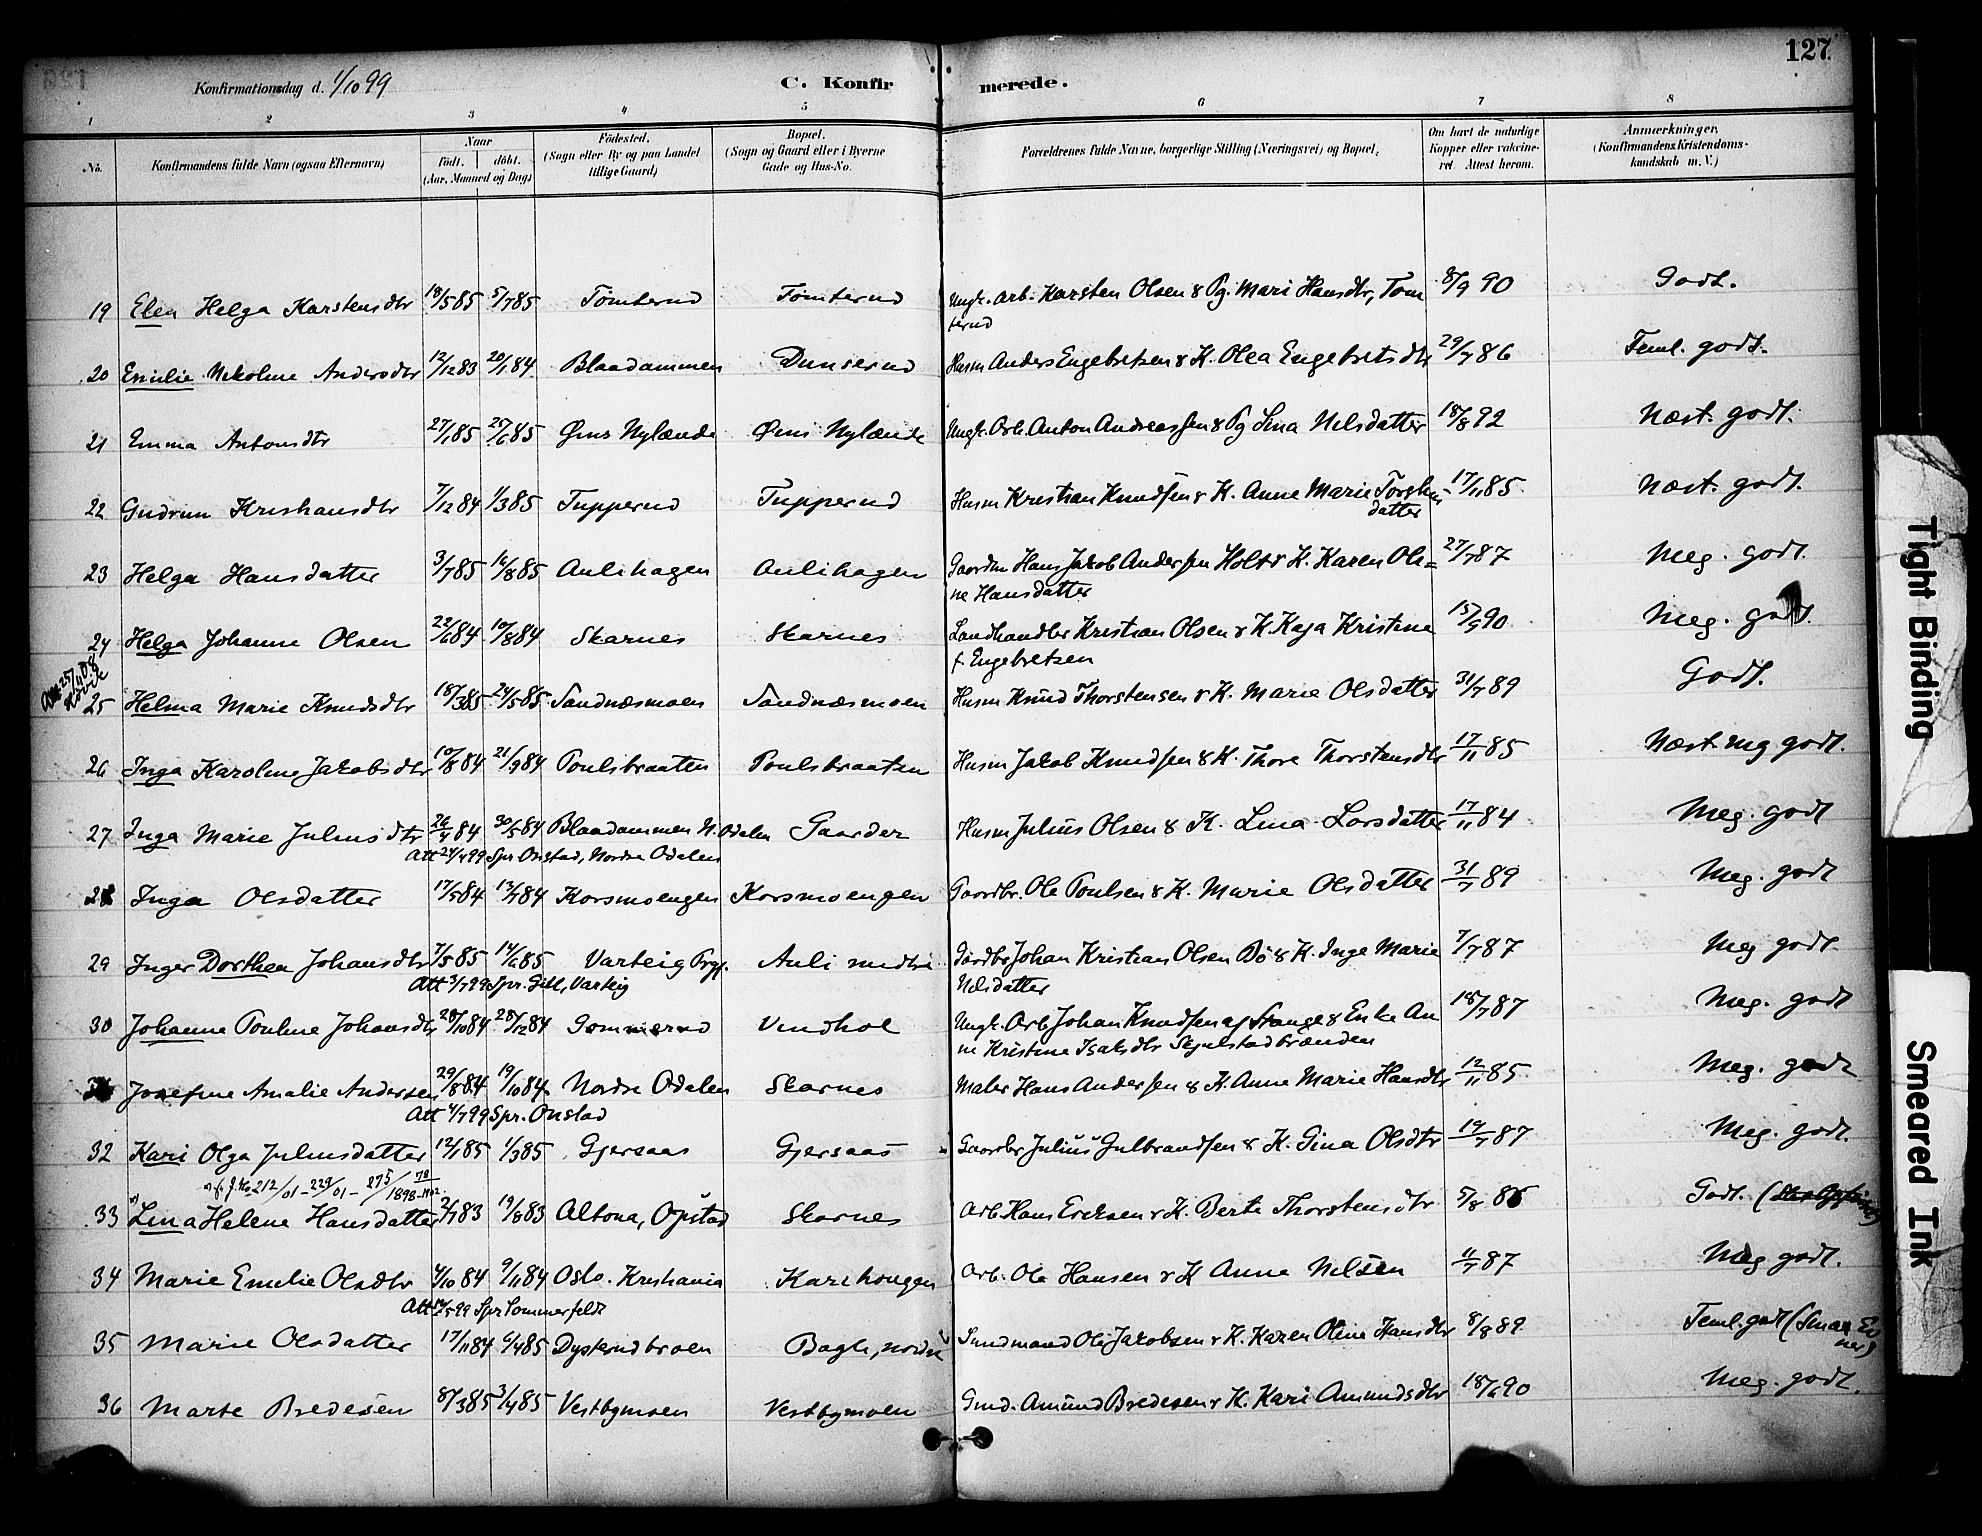 127
Konfirmationsdag d. 1/10 99
C. Konfirmerede.
1 2 3 4 5 6 7 8
No. Konfirmandens fulde Navn (ogsaa Efternavn) Naar födt. döbt. (Aar, Maaned og Dag) Födested. (Sogn eller By og paa Landet tillige Gaard) Bopæl. (Sogn og Gaard eller i Byerne Gade og Hus-No. Forældrenes fulde Navne, borgerlige Stilling (Næringsvei) og Bopæl. Om havt de naturlige Kopper eller vakcineret. Attest herom. Anmærkninger. (Konfirmandens Kristendomskundskab m. V.)
19 Elen Helga Karstensdtr 18/5 85 5/7 85 Tömterud Tömterud Ungk. Arb. Karsten Olsen & Pg. Mari Hansdtr, Tom 8/9 90 Godt.
terud
20 Emilie Nikoline Andersdtr 12/12 83 20/1 84 Blaadammen Dunserud Husm Anders Engebretsen & K. Olea Engebretsdtr 29/7 86 Teml. godt.
21 Emma Antonsdtr 27/1 85 25/6 85 Øens Nylænde Øens Nylænde Ungk. Arb. Anton Andreassen & Pg Lina Nilsdatter 18/8 92 Næst. godt.
22 Gudrun Kristiansdtr 7/12 84 1/3 85 Tupperud Tupperud Husm Kristian Knudsen & K. Anne Marie 17/11 85 Næst. godt.
datter
23 Helga Hansdatter 3/7 85 16/8 85 Aulihagen Aulihagen Gaardm Hans Jakob Andersen Holt & K. Karen Oli= 27/7 87 Meg. godt.
ne Hansdatter
24 Helga Johanne Olsen 22/6 84 10/8 84 Skarnes Skarnes Landhandler Kristian Olsen & K. Kaja Kristine 15/5 90 Meg. godt.
f. Engebretsen
Att 25/4 08
25 Helma Marie Knudsdtr 18/3 85 24/5 85 Sandnæsmoen Sandnæsmoen Husm Knud Thorstensen & K. Marie Olsdatter 31/7 89 Godt.
26 Inga Karoline Jakobsdtr 10/8 84 21/9 84 Poulsbraatten Poulsbraaten Husm Jakob Knudsen & K. Thore Thorstensdtr 17/11 85 Næst meg godt.
27 Inga Marie Juliusdtr 26/4 84 30/5 84 Blaadammen N. Odalen Gaarder Husm Julius Olsen & K. Lina Larsdatter 17/11 84 Meg. godt
Att 24/4 99 Spr Onstad, Nordre Odalen
28 Inga Olsdatter 17/5 84 13/7 84 Korsmoengen Korsmoengen Gaardbr. Ole Poulsen & K. Marie Olsdatter 31/7 89 Meg. godt
29 Inger Dorthea Johansdtr 7/5 85 14/6 85 Varteig Prgj. Auli nedtre Gardbr Johan Kristian Olsen Bö & K. Inge Marie 7/7 87 Meg godt
Att 3/7 99 Spr. Varteig Nilsdatter
30 Johanne Pouline Johansdtr 28/10 84 28/12 84 Gommerud Vendhol Ungk. Arb Johan Knudsen af Stange & Enke An 18/7 87 Meg. godt
ne Kristine Isaksdtr
31 Josefine Amalie Andersen 29/8 84 19/10 84 Nordre Odalen Skarnes Maler Hans Andersen & K. Anne Marie Hansdtr 12/11 85 Meg. godt
Att 4/7 99 Spr. Onstad
32 Kari Olga Juliusdatter 12/1 85 1/3 85 Gjersaas Gjersaas Gaardbr Julius Gulbrandsen & K. Gina Olsdtr 19/7 87 Meg. godt.
212/01 - 229/01 - 275/1898
33 Lina Helene Hansdatter 2/7 83 19/8 83 Altona, Opstad Skarnes Arb. Hans Ericksen & K. Berte Thorstensdtr 5/8 86 Godt.
34 Marie Emelie Olsdtr 4/10 84 9/11 84 Oslo. Kristiania Karihougen Arb. Ole Hansen & K Anne Nilsen 11/7 87 Meg godt.
Att 5 99 Spr Sommerfeldt
35 Marie Olsdatter 17/11 84 6/4 85 Dysterudbroen Bagle, nordre Sundmand Ole Jakobsen & K. Karen Oline Hansdtr 8/8 89 Teml. godt (Smaa Ev
ner)
36 Marte Bredesen 8/3 85 3/4 85 Vestbymoen Vestbymoen Gmd. Amund Bredesen & K. Kari Amundsdtr 18/6 90 Meg. godt.
Tight Binding
Smeared Ink